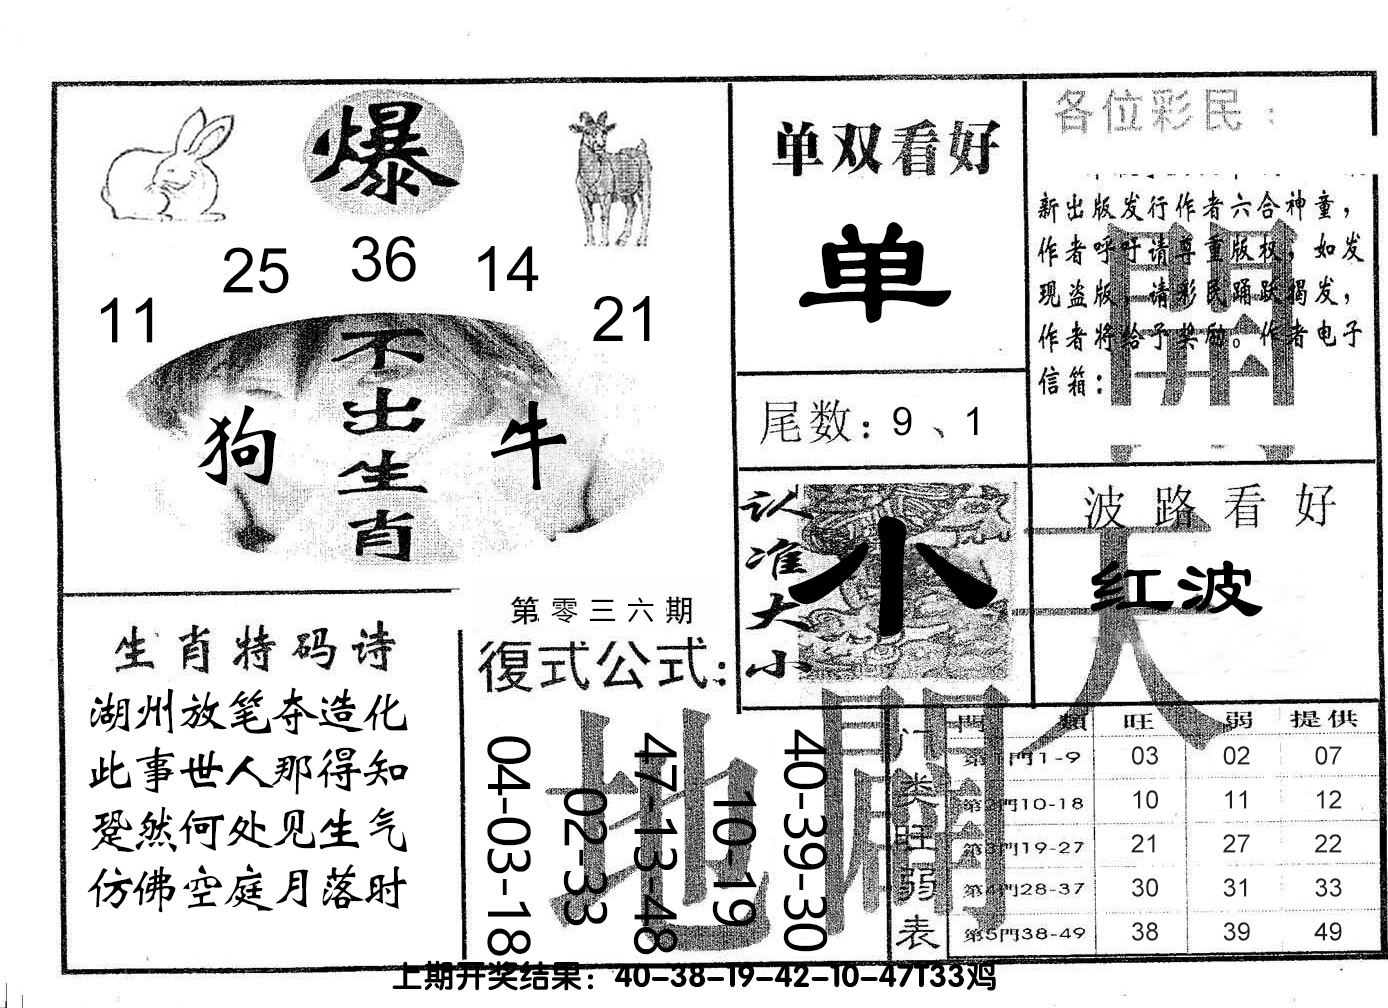 爆
11
25
36
14
21
不出生肖
狗
牛
单双看好
单
尾数：9、1
各位彩民：
新出版发行作者六合神童，
作者呼吁请尊重版权，如发
现盗版，请彩民踊跃揭发，
作者将给予奖励。作者电子
信箱：
開
认准大小
小
波路看好
红波
天
生肖特码诗
湖州放笔夺造化
此事世人那得知
跫然何处见生气
仿佛空庭月落时
第零三六期
復式公式：
04-03-18
02-33
47-13-48
10-19
40-39-30
地
闢
门类旺弱表
門類 旺 弱 提供
第1門1-9 03 02 07
第2門10-18 10 11 12
第3門19-27 21 27 22
第4門28-37 30 31 33
第5門38-49 38 39 49
上期开奖结果：40-38-19-42-10-47T33鸡